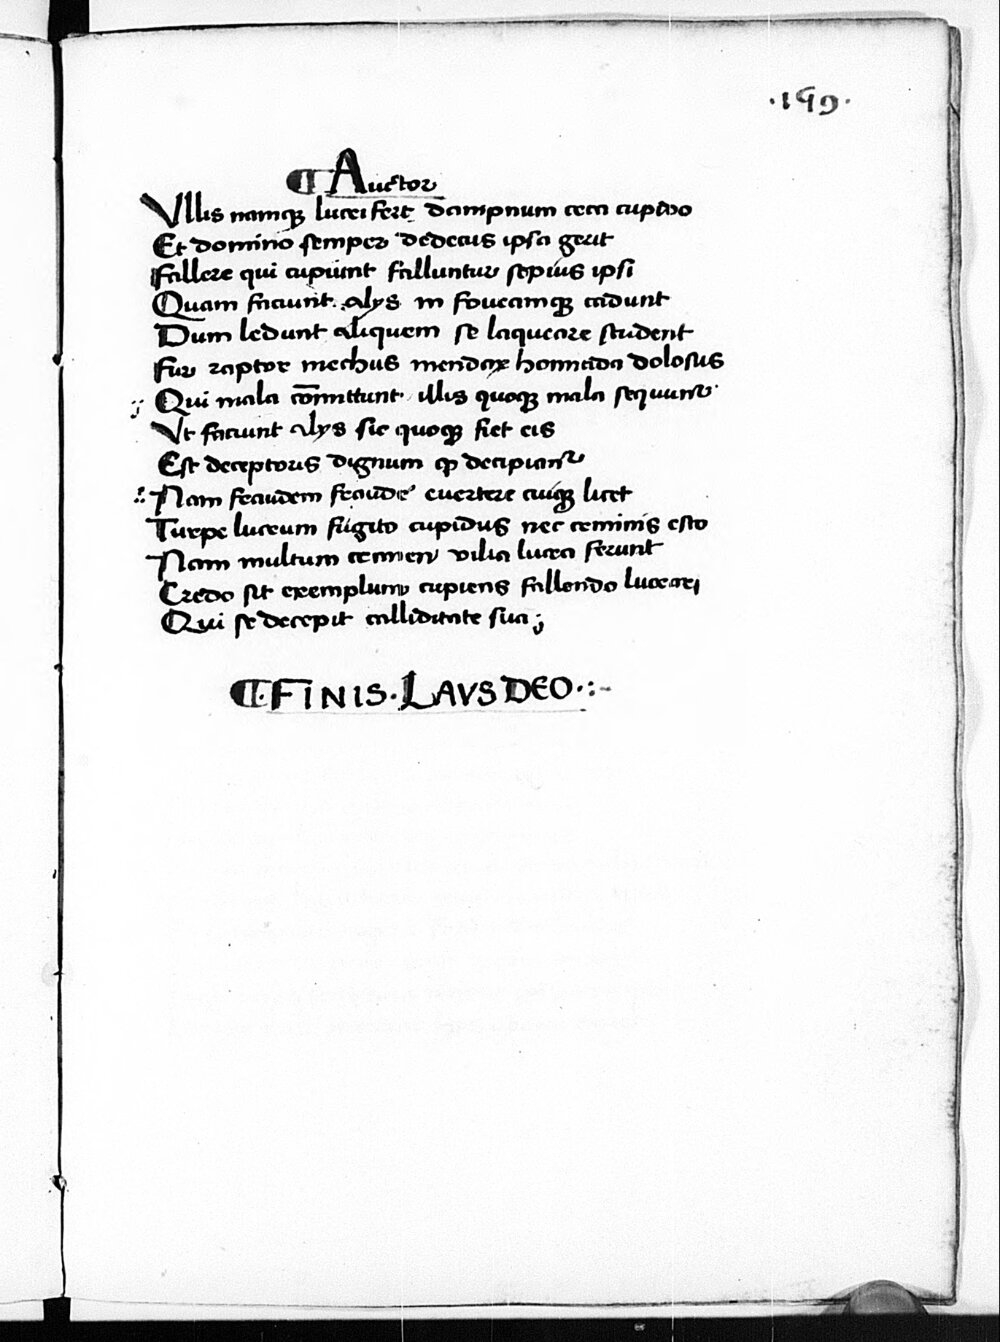 ·199·
¶ Auctor
Vllis namqꝫ lucri fert dampnum ceca cupido
Et domino semper dedecus ipsa gerit
Fallere qui cupiunt falluntur sepius ipsi
Quam faciunt alijs in foueamqꝫ cadunt
Dum ledunt aliquem se laqueare student
Fur raptor mechus mendax homicida dolosus
Qui mala cōmittunt illis quoqꝫ mala sequunt᷑
Vt faciunt alijs sic quoqꝫ fiet eis
Est deceptoris dignum ꝙ decipiant᷑
Nam fraudem fraude euertere cuiqꝫ licet
Turpe lucrum fugito cupidus nec criminis esto
Nam multum crimen vilia lucra ferunt
Credo sit exemplum cupiens fallendo lucrari
Qui se decepit calliditate sua;
¶·FINIS·LAVS DEO·:~